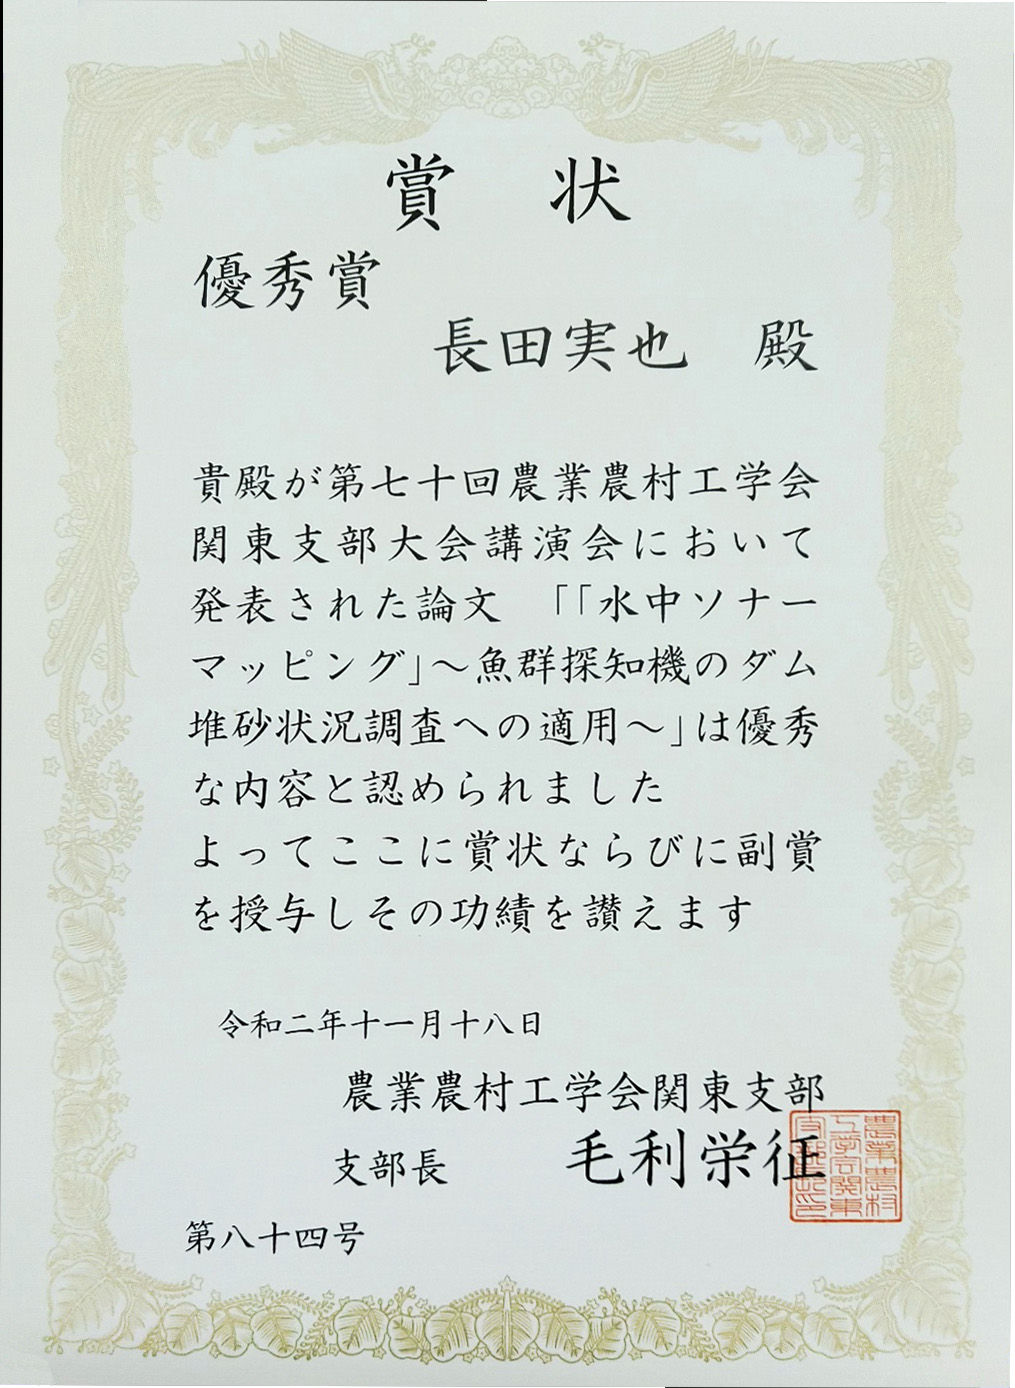 賞 状
優秀賞
長田実也 殿
貴殿が第七十回農業農村工学会
関東支部大会講演会において
発表された論文 「「水中ソナー
マッピング」～魚群探知機のダム
堆砂状況調査への適用～」は優秀
な内容と認められました
よってここに賞状ならびに副賞
を授与しその功績を讃えます
令和二年十一月十八日
農業農村工学会関東支部
支部長 毛利栄征
農業農村
工学会関東
支部
第八十四号